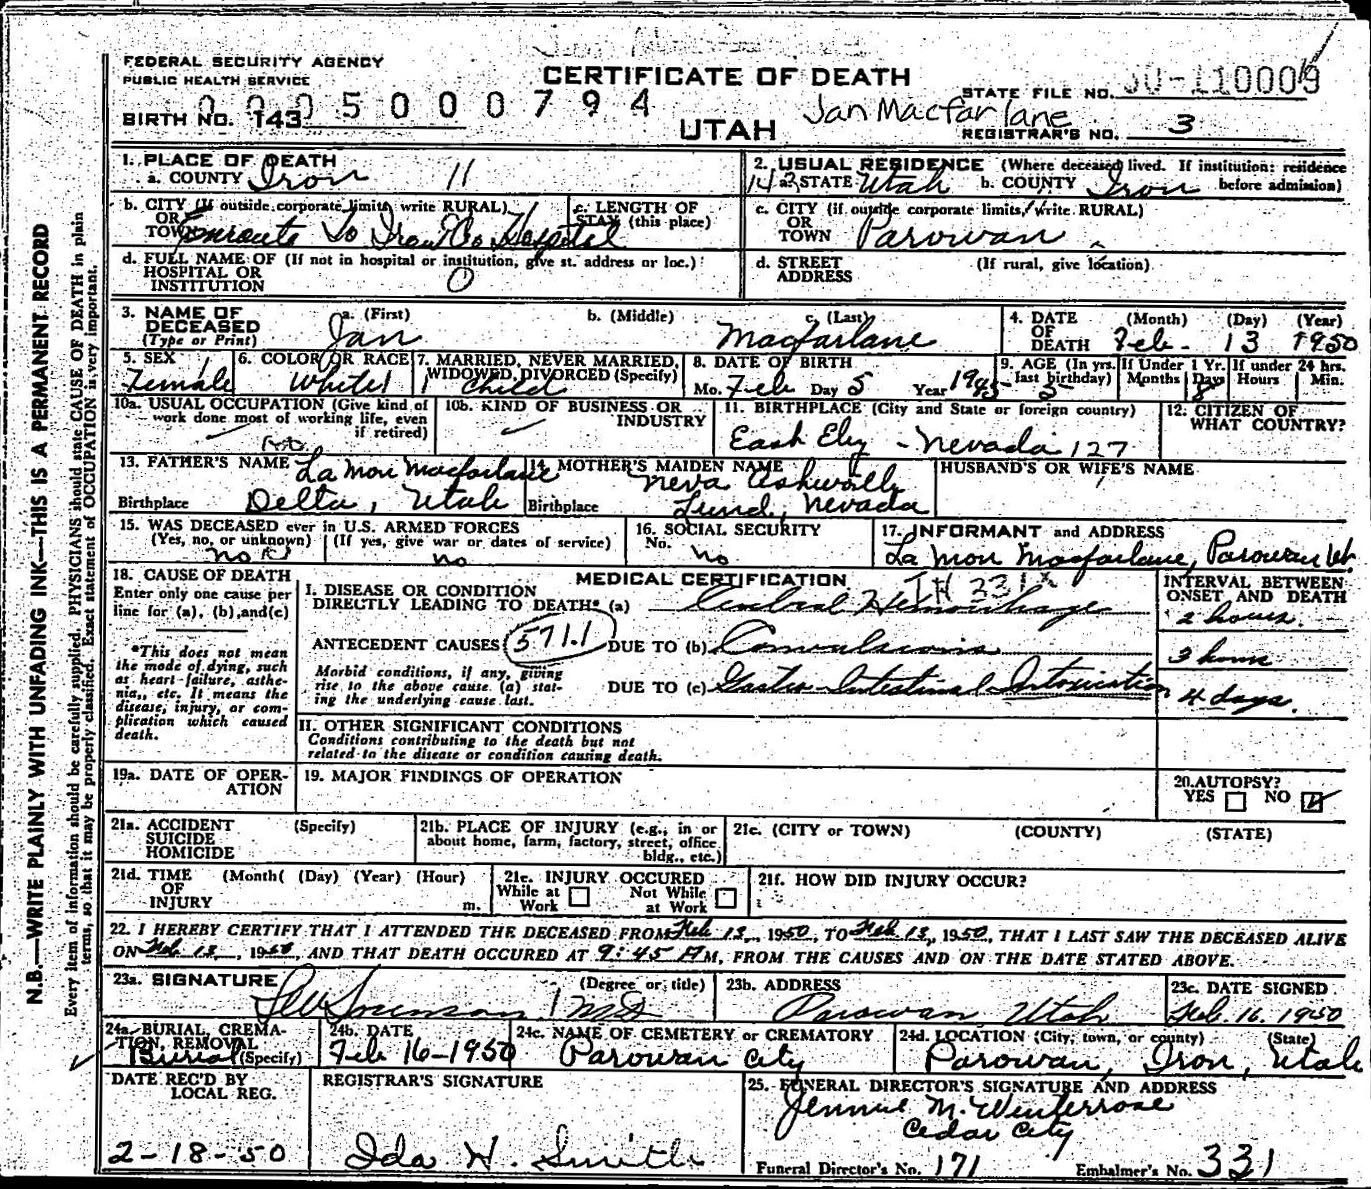 FEDERAL SECURITY AGENCY
PUBLIC HEALTH SERVICE
CERTIFICATE OF DEATH
STATE FILE NO. 50-110009
0005000794
BIRTH NO. 143
UTAH
Jan Macfarlane
REGISTRAR'S NO. 3
1. PLACE OF DEATH
a. COUNTY Iron 11
2. USUAL RESIDENCE (Where deceased lived. If institution: residence before admission)
143 a. STATE Utah b. COUNTY Iron
b. CITY (If outside corporate limits, write RURAL)
OR
TOWN Enroute To Iron Co Hospital
c. LENGTH OF
STAY (this place)
c. CITY (if outside corporate limits, write RURAL)
OR
TOWN Parowan
d. FULL NAME OF (If not in hospital or institution, give st. address or loc.)
HOSPITAL OR
INSTITUTION 0
d. STREET (If rural, give location)
ADDRESS
3. NAME OF
DECEASED
(Type or Print)
a. (First) b. (Middle) c. (Last)
Jan Macfarlane
4. DATE (Month) (Day) (Year)
OF
DEATH Feb. 13 1950
5. SEX
Female
6. COLOR OR RACE
White
7. MARRIED, NEVER MARRIED,
WIDOWED, DIVORCED (Specify)
Child
8. DATE OF BIRTH
Mo. Feb Day 5 Year 1945
9. AGE (In yrs. last birthday) 5
If Under 1 Yr. Months Days 8
If under 24 hrs. Hours Min.
10a. USUAL OCCUPATION (Give kind of
work done most of working life, even
if retired)
10b. KIND OF BUSINESS OR
INDUSTRY
11. BIRTHPLACE (City and State or foreign country)
East Ely - Nevada 127
12. CITIZEN OF
WHAT COUNTRY?
13. FATHER'S NAME La Mon Macfarlane
Birthplace Delta, Utah
14. MOTHER'S MAIDEN NAME
Neva
Birthplace Lund, Nevada
HUSBAND'S OR WIFE'S NAME
15. WAS DECEASED ever in U.S. ARMED FORCES
(Yes, no, or unknown) (If yes, give war or dates of service)
no no
16. SOCIAL SECURITY
No. no
17. INFORMANT and ADDRESS
La Mon Macfarlane, Parowan Ut.
18. CAUSE OF DEATH
Enter only one cause per
line for (a), (b), and (c)
*This does not mean
the mode of dying, such
as heart failure, asthe-
nia, etc. It means the
disease, injury, or com-
plication which caused
death.
MEDICAL CERTIFICATION
I. DISEASE OR CONDITION
DIRECTLY LEADING TO DEATH* (a) Cerebral Hemorrhage
ANTECEDENT CAUSES 571.1 DUE TO (b) Convulsions
Morbid conditions, if any, giving
rise to the above cause (a) stat-
ing the underlying cause last.
DUE TO (c) Gastro-Intestinal Intoxication
INTERVAL BETWEEN
ONSET AND DEATH
2 hours.
3 hours
4 days.
II. OTHER SIGNIFICANT CONDITIONS
Conditions contributing to the death but not
related to the disease or condition causing death.
19a. DATE OF OPER-
ATION
19. MAJOR FINDINGS OF OPERATION
20. AUTOPSY?
YES NO
21a. ACCIDENT (Specify)
SUICIDE
HOMICIDE
21b. PLACE OF INJURY (e.g., in or
about home, farm, factory, street, office
bldg., etc.)
21c. (CITY or TOWN) (COUNTY) (STATE)
21d. TIME (Month( (Day) (Year) (Hour)
OF
INJURY m.
21e. INJURY OCCURED
While at Work Not While at Work
21f. HOW DID INJURY OCCUR?
22. I HEREBY CERTIFY THAT I ATTENDED THE DECEASED FROM Feb 13, 1950, TO Feb 13, 1950, THAT I LAST SAW THE DECEASED ALIVE
ON Feb. 13, 1950, AND THAT DEATH OCCURED AT 9:45 M, FROM THE CAUSES AND ON THE DATE STATED ABOVE.
23a. SIGNATURE (Degree or title)
MD
23b. ADDRESS
Parowan Utah
23c. DATE SIGNED
Feb. 16, 1950
24a. BURIAL, CREMA-
TION, REMOVAL
Burial (Specify)
24b. DATE
Feb 16-1950
24c. NAME OF CEMETERY or CREMATORY
Parowan City
24d. LOCATION (City, town, or county) (State)
Parowan, Iron, Utah
DATE REC'D BY
LOCAL REG.
2-18-50
REGISTRAR'S SIGNATURE
Ida H. Smith
25. FUNERAL DIRECTOR'S SIGNATURE AND ADDRESS
Jennie M. Winterrose
Cedar City
Funeral Director's No. 171 Embalmer's No. 331
N.B.—WRITE PLAINLY WITH UNFADING INK—THIS IS A PERMANENT RECORD
Every item of information should be carefully supplied. PHYSICIANS should state CAUSE OF DEATH in plain
terms, so that it may be properly classified. Exact statement of OCCUPATION is very important.